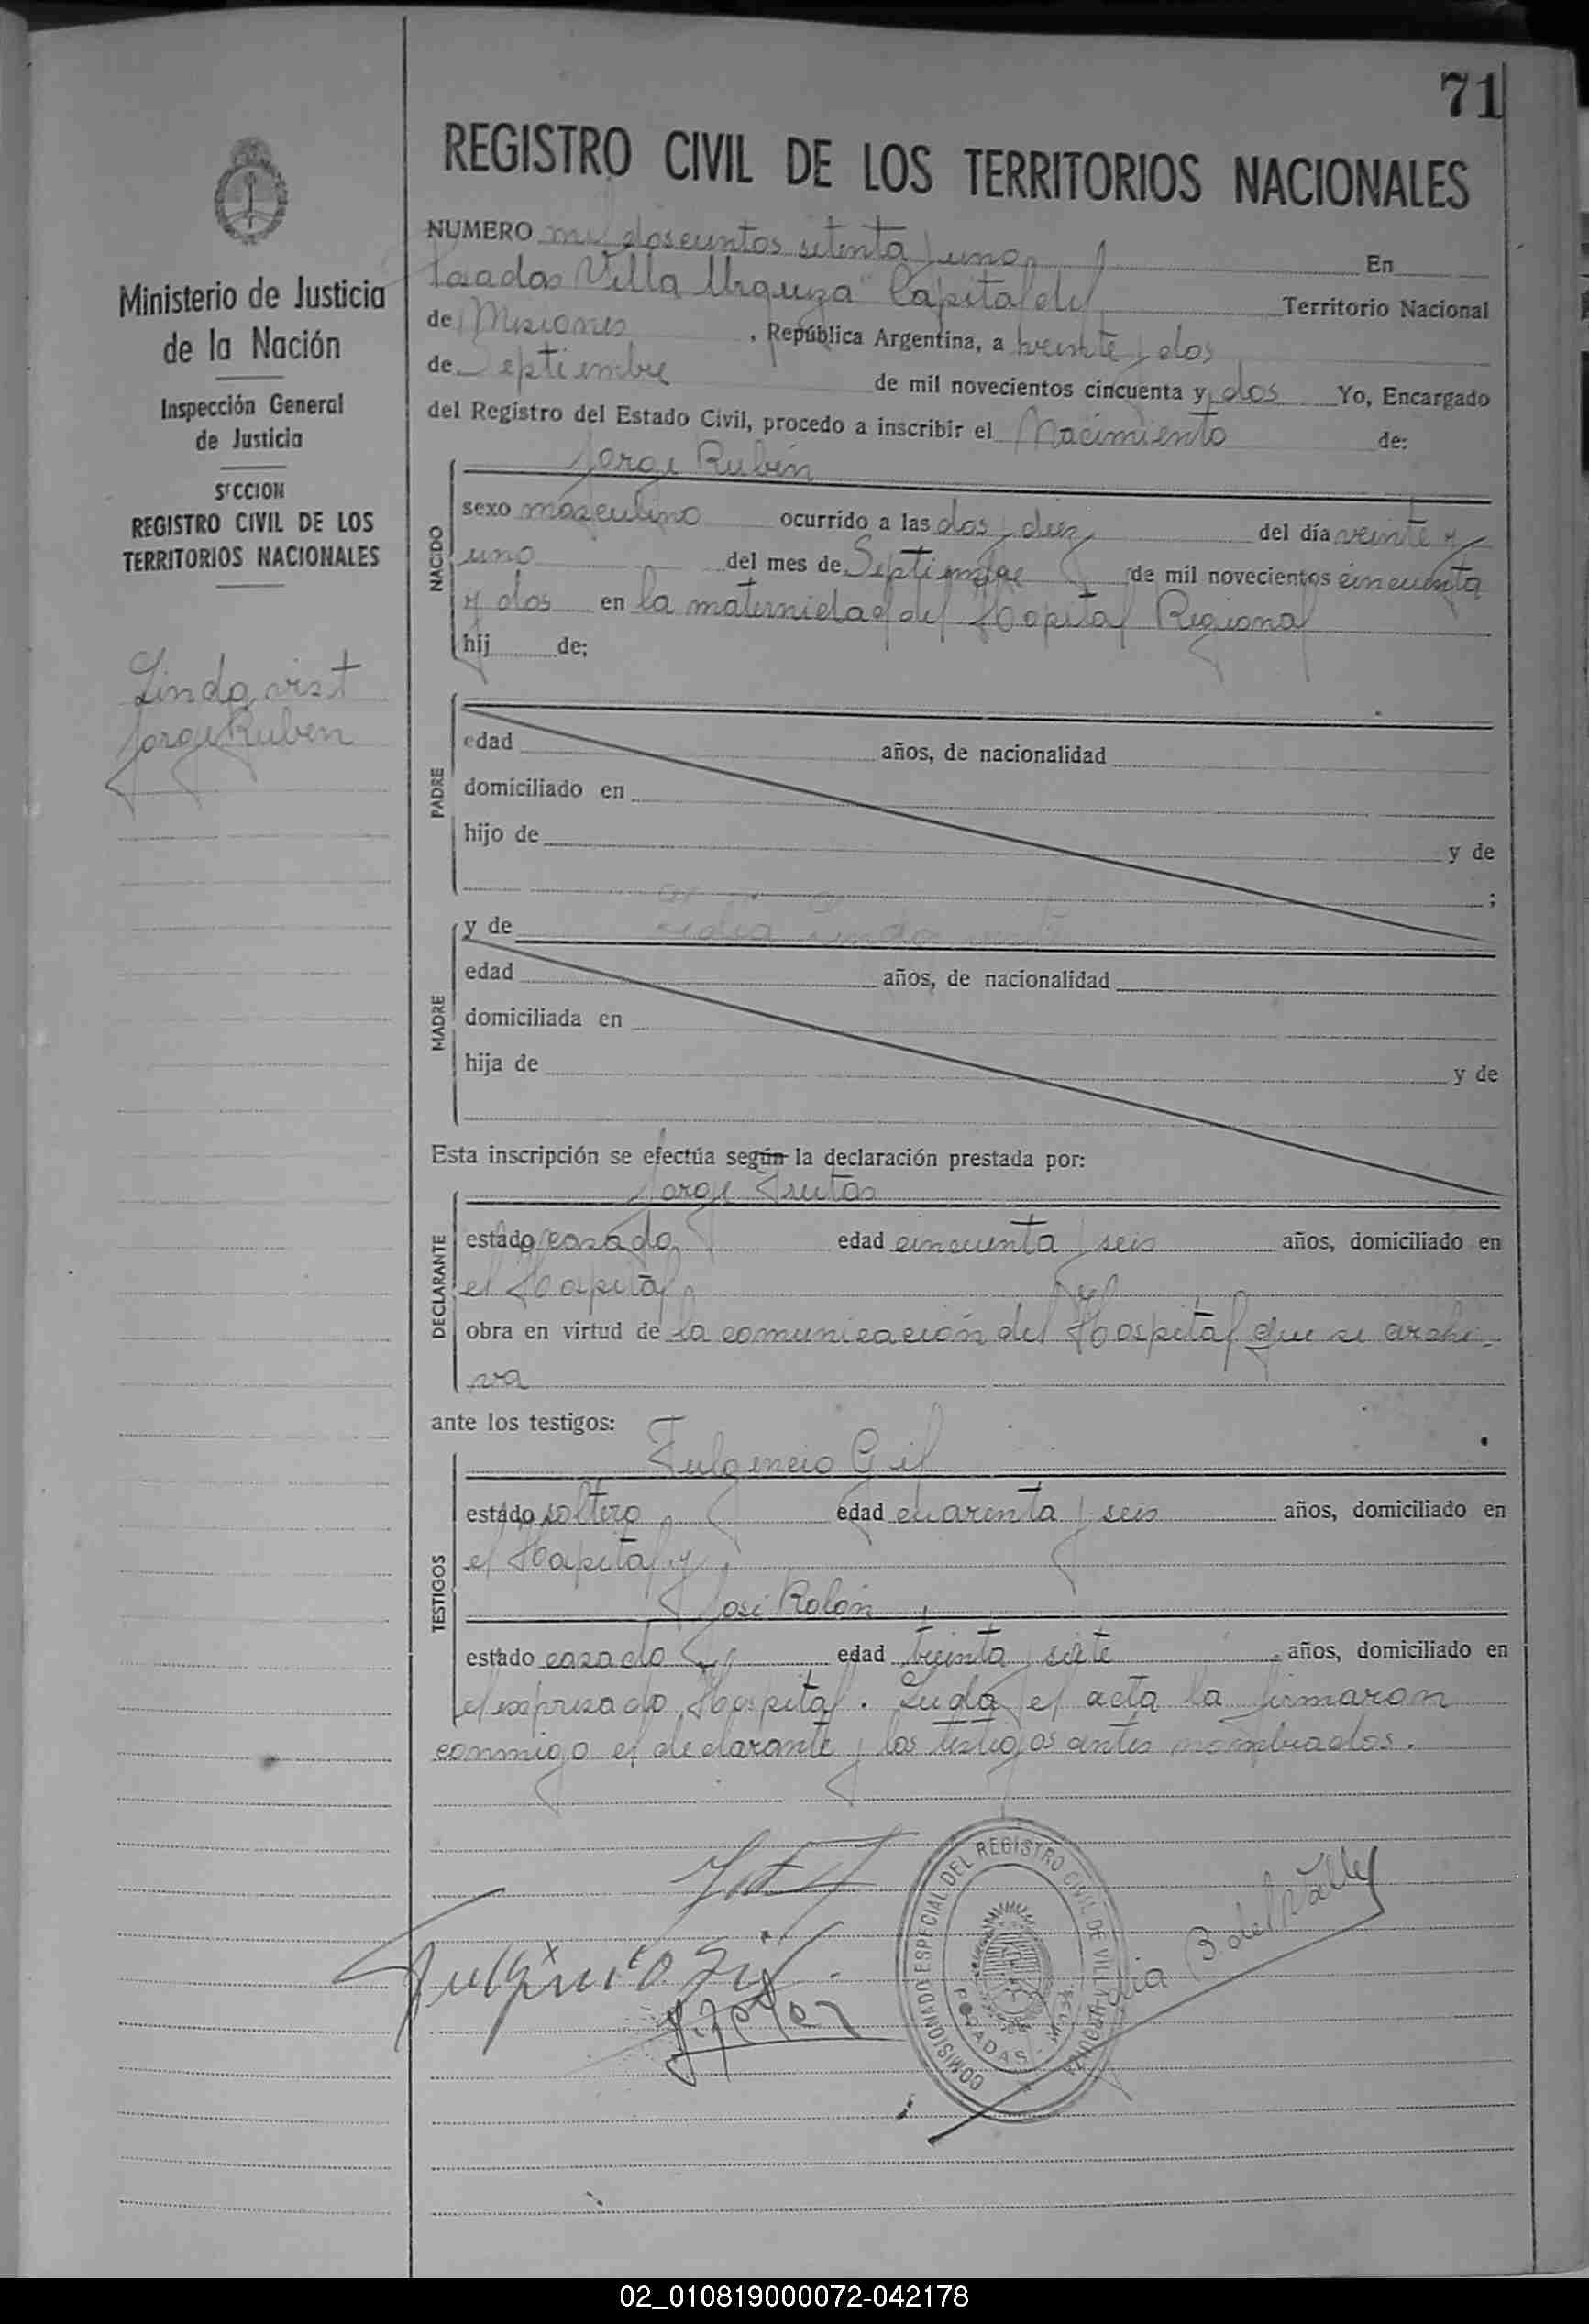 71
REGISTRO CIVIL DE LOS TERRITORIOS NACIONALES
Ministerio de Justicia
de la Nación
Inspección General
de Justicia
SECCION
REGISTRO CIVIL DE LOS
TERRITORIOS NACIONALES
Lindavist
Jorge Ruben
NUMERO mil doscientos setenta y uno En
Posadas Villa Urquiza Capital del Territorio Nacional
de Misiones, República Argentina, a veinte y dos
de Septiembre de mil novecientos cincuenta y dos Yo, Encargado
del Registro del Estado Civil, procedo a inscribir el Nacimiento de:
Jorge Rubén
NACIDO
sexo masculino ocurrido a las dos y diez del día veinte y
uno del mes de Septiembre de mil novecientos cincuenta
y dos en la maternidad del Hospital Regional
hij de:
PADRE
edad años, de nacionalidad
domiciliado en
hijo de y de
;
MADRE
y de
edad años, de nacionalidad
domiciliada en
hija de y de
Esta inscripción se efectúa según la declaración prestada por:
Jorge Frutos
DECLARANTE
estado casado edad cincuenta y seis años, domiciliado en
el Hospital
obra en virtud de la comunicación del Hospital que se archi-
va
ante los testigos:
Fulgencio Gil
TESTIGOS
estado soltero edad cuarenta y seis años, domiciliado en
el Hospital y
José Rolón
estado casado edad treinta y siete años, domiciliado en
el expresado Hospital. Leida el acta la firmaron
conmigo el declarante y los testigos antes nombrados.
Fulgencio Gil
B. del Valle
COMISIONADO ESPECIAL DEL REGISTRO CIVIL DE VILLA URQUIZA
POSADAS
02_010819000072-042178